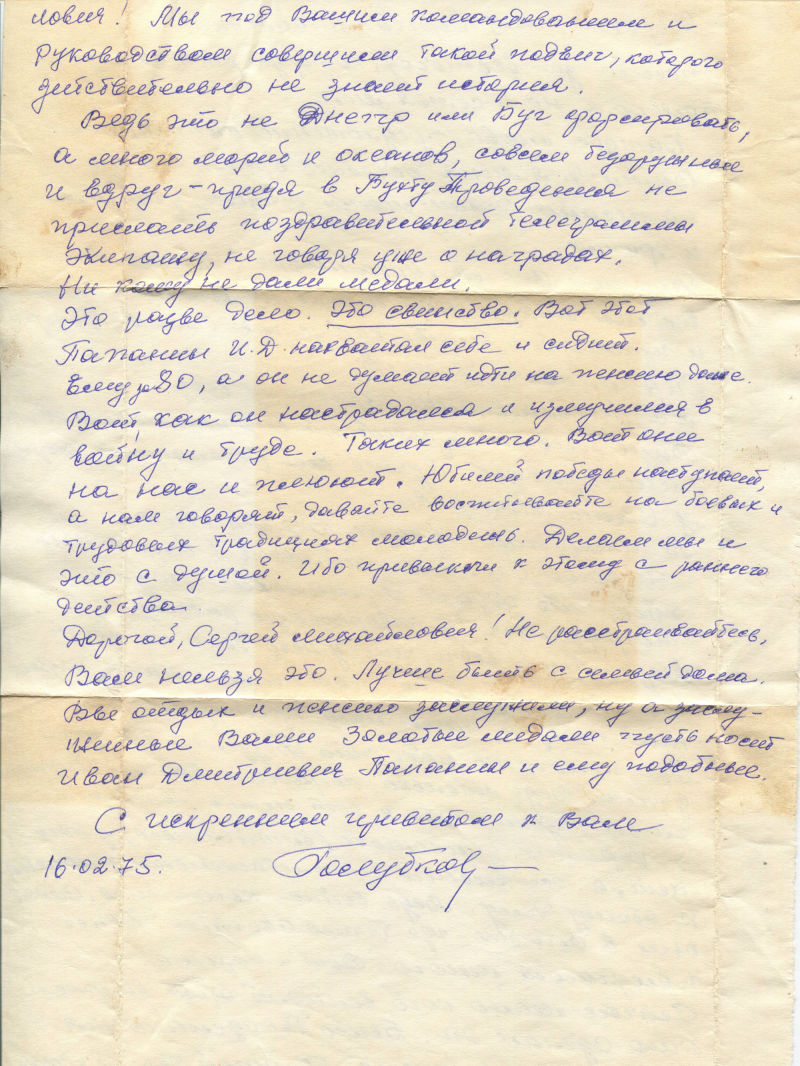 лович! Мы под Вашим командованием и
руководством совершили такой подвиг, которого
действительно не знает история.
Ведь это не Днепр или Буг форсировать,
а много морей и океанов, совсем безоружные
и вдруг – придя в Бухту Проведения не
прислать поздравительной телеграммы
Экипажу, не говоря уже о наградах.
Ни кому не дали медали.
Это разве дело. Это свинство. Вот этот
Папанин И.Д. нахватал себе и сидит.
Ему уж 80, а он не думает идти на пенсию даже.
Вот, как он настрадался и измучился в
войну и труде. Таких много. Вот они
на нас и плюют. Юбилей победы наступает,
а нам говорят, давайте воспитывайте на боевых и
трудовых традициях молодежь. Делаем мы и
это с душой. Ибо привыкли к этому с раннего
детства.
Дорогой, Сергей Михайлович! Не расстраивайтесь,
Вам нельзя это. Лучше быть с семьей дома.
Вы отдых и пенсию заслужили, ну а заслу-
женные Вами Золотые медали пусть носит
Иван Дмитриевич Папанин и ему подобные.
С искренним приветом к Вам
16.02.75. Голубков